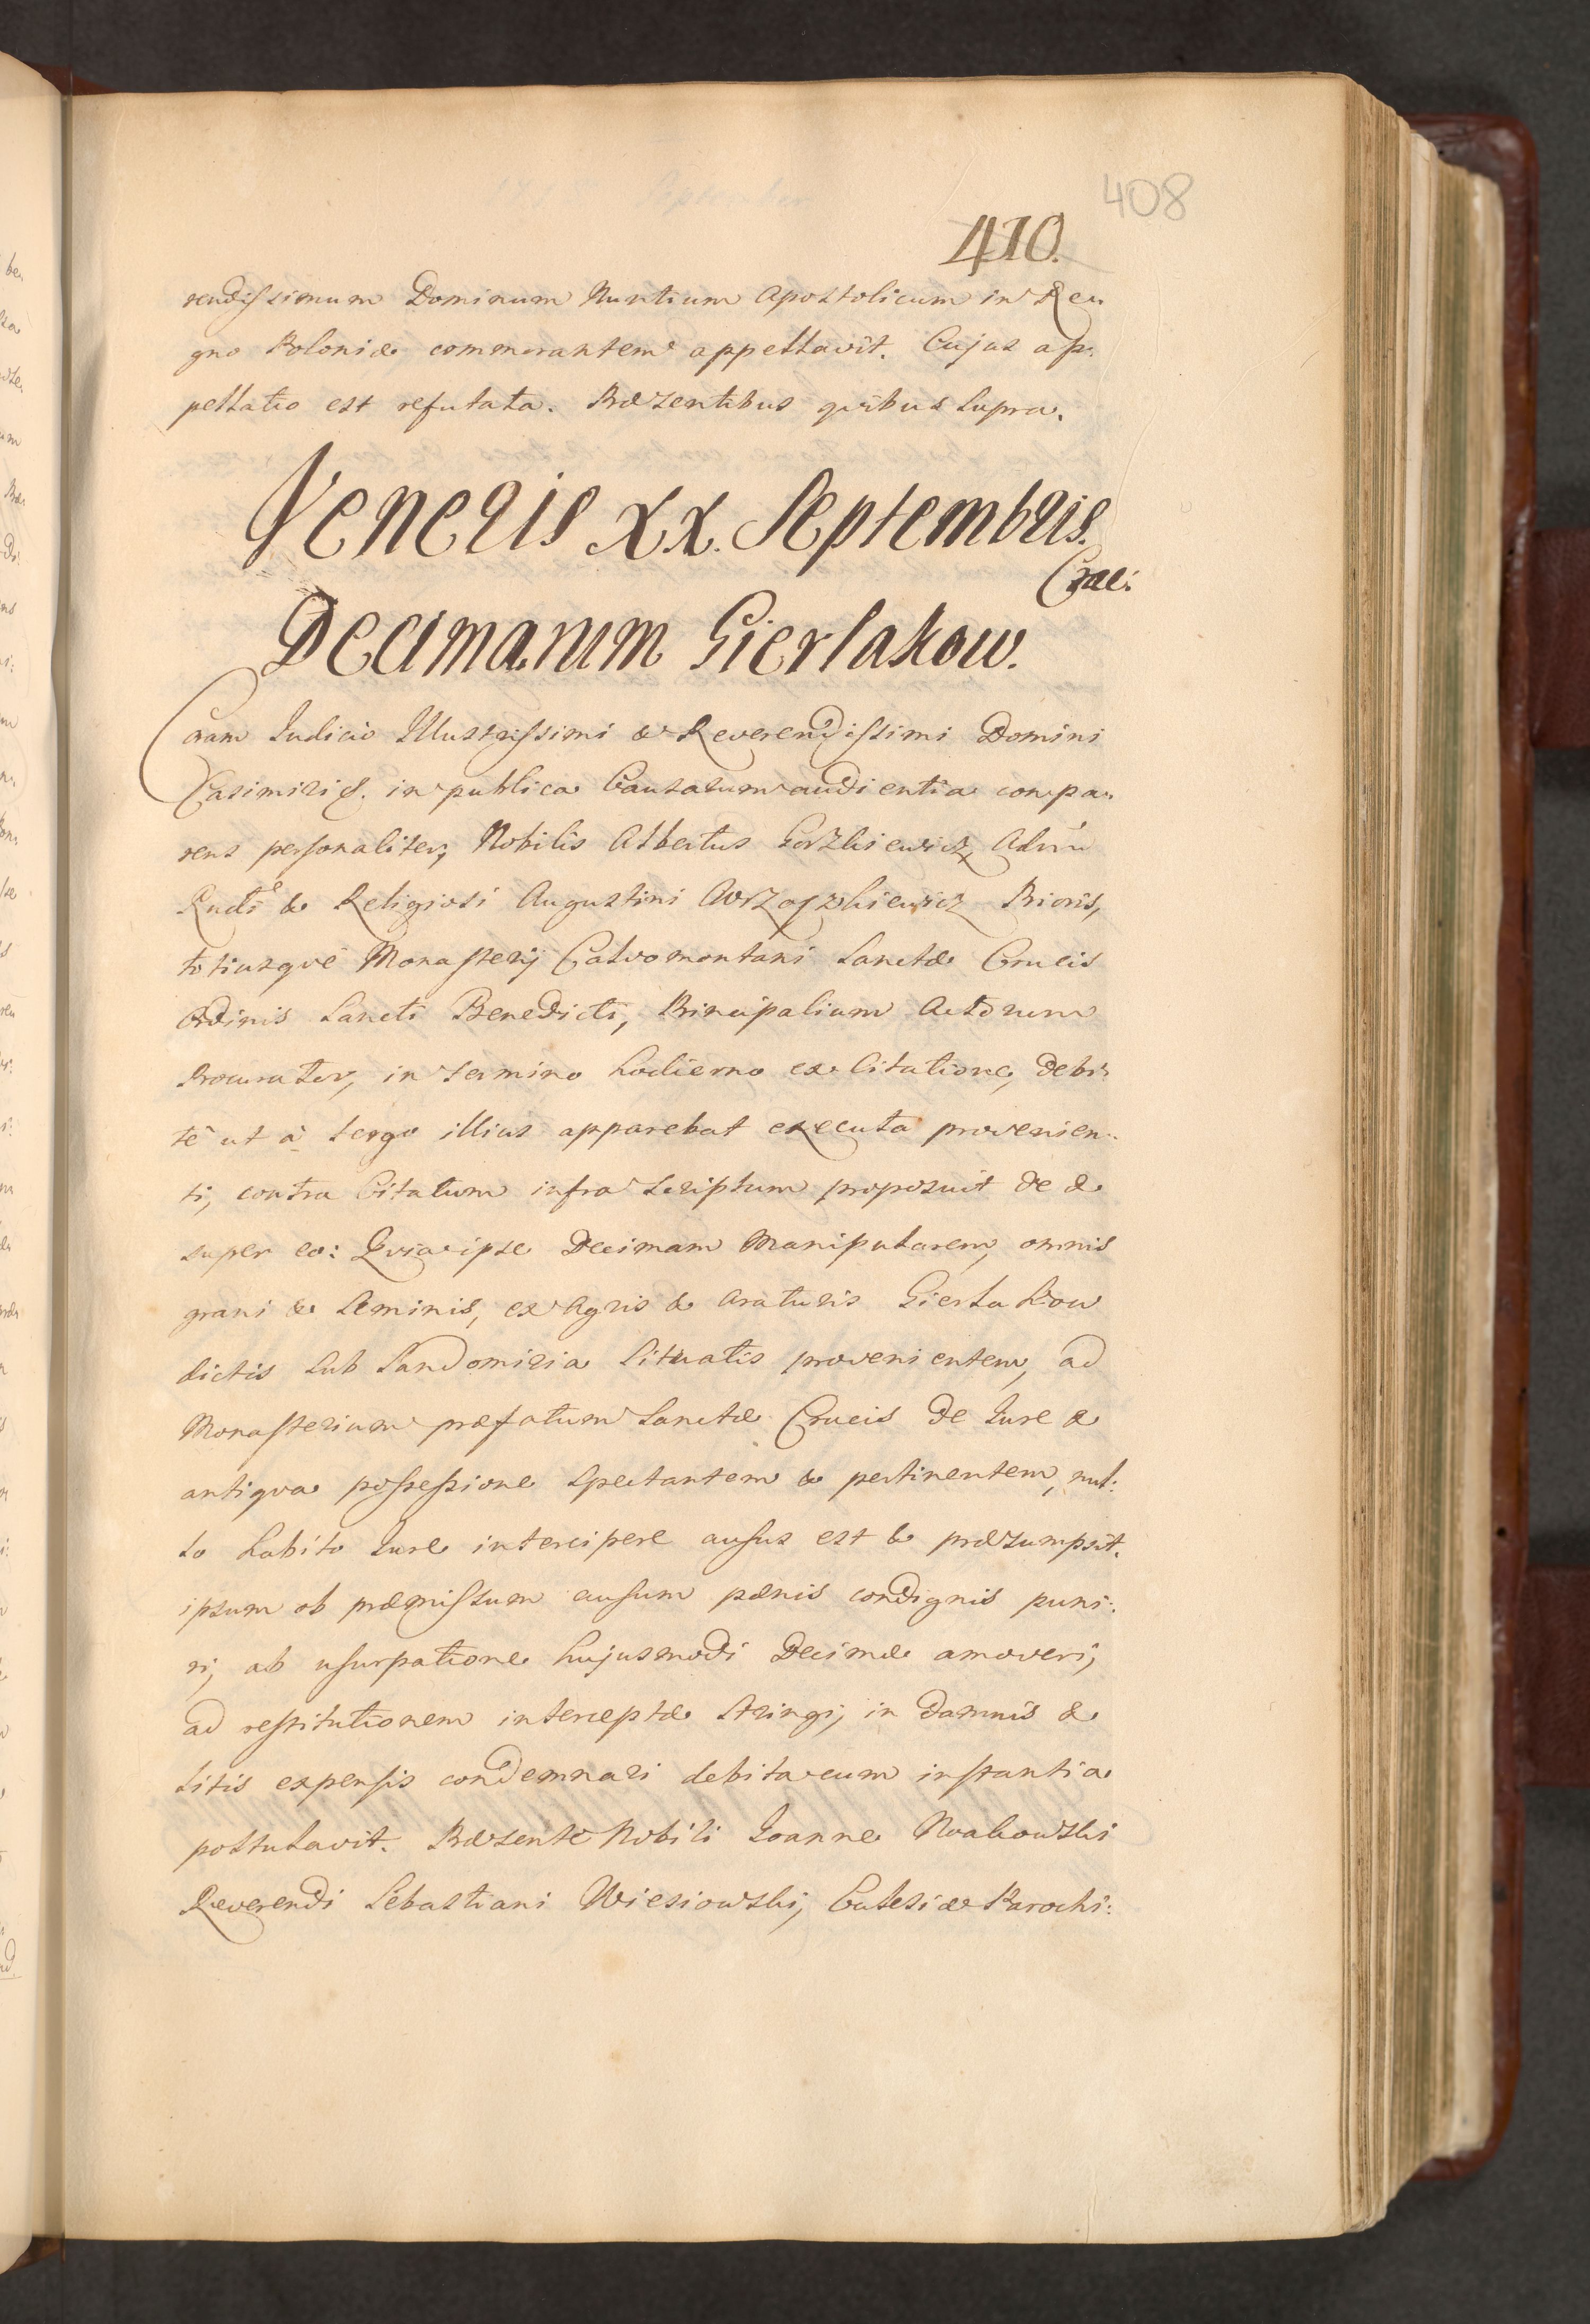 408
410.
rendissimum Dominum Nuntium Apostolicum in Re
gno Poloniæ commorantem appellavit. Cujus ap:
pellatio est refutata. Præsentibus quibus supra.
Veneris XX. Septembris.
Decimarum Gierlakow.
Coram Judicio Illustrissimi & Reverendissimi Domini
Casimiri &. in publica Causarum audientia compa
rens personaliter, Nobilis Albertus
& Religiosi Augustini Prioris,
totiusque Monasterij Calvomontani Sanctæ Crucis
Ordinis Sancti Benedicti, Principalium Actorum
Procurator, in termino hodierno ex Citatione, debi
tè ut à tergo illius apparebat executa provenien
ti, contra Citatum infra scriptum proposuit de &
super eo: Quia ipse Decimam Manipularem, omnis
grani & seminis, ex Agris & araturis Gierlakow
dictis sub Sandomiria situatis provenientem, ad
Monasterium præfatum Sanctæ Crucis de Jure &
antiqua possessione spectantem & pertinentem, nul:
lo habito Jure intercipere ausus est & præsumpsit.
ipsum ob præmissum ausum pænis condignis puni:
ri, ab usurpatione hujusmodi Decimæ amoveri,
ad restitutionem interceptæ stringi, in damnis &
litis expensis condemnari debita cum instantia
postulavit. Præsente Nobili Joanne Noakowski
Reverendi Sebastiani Wiesiowski, Ecclesiæ Parochi: